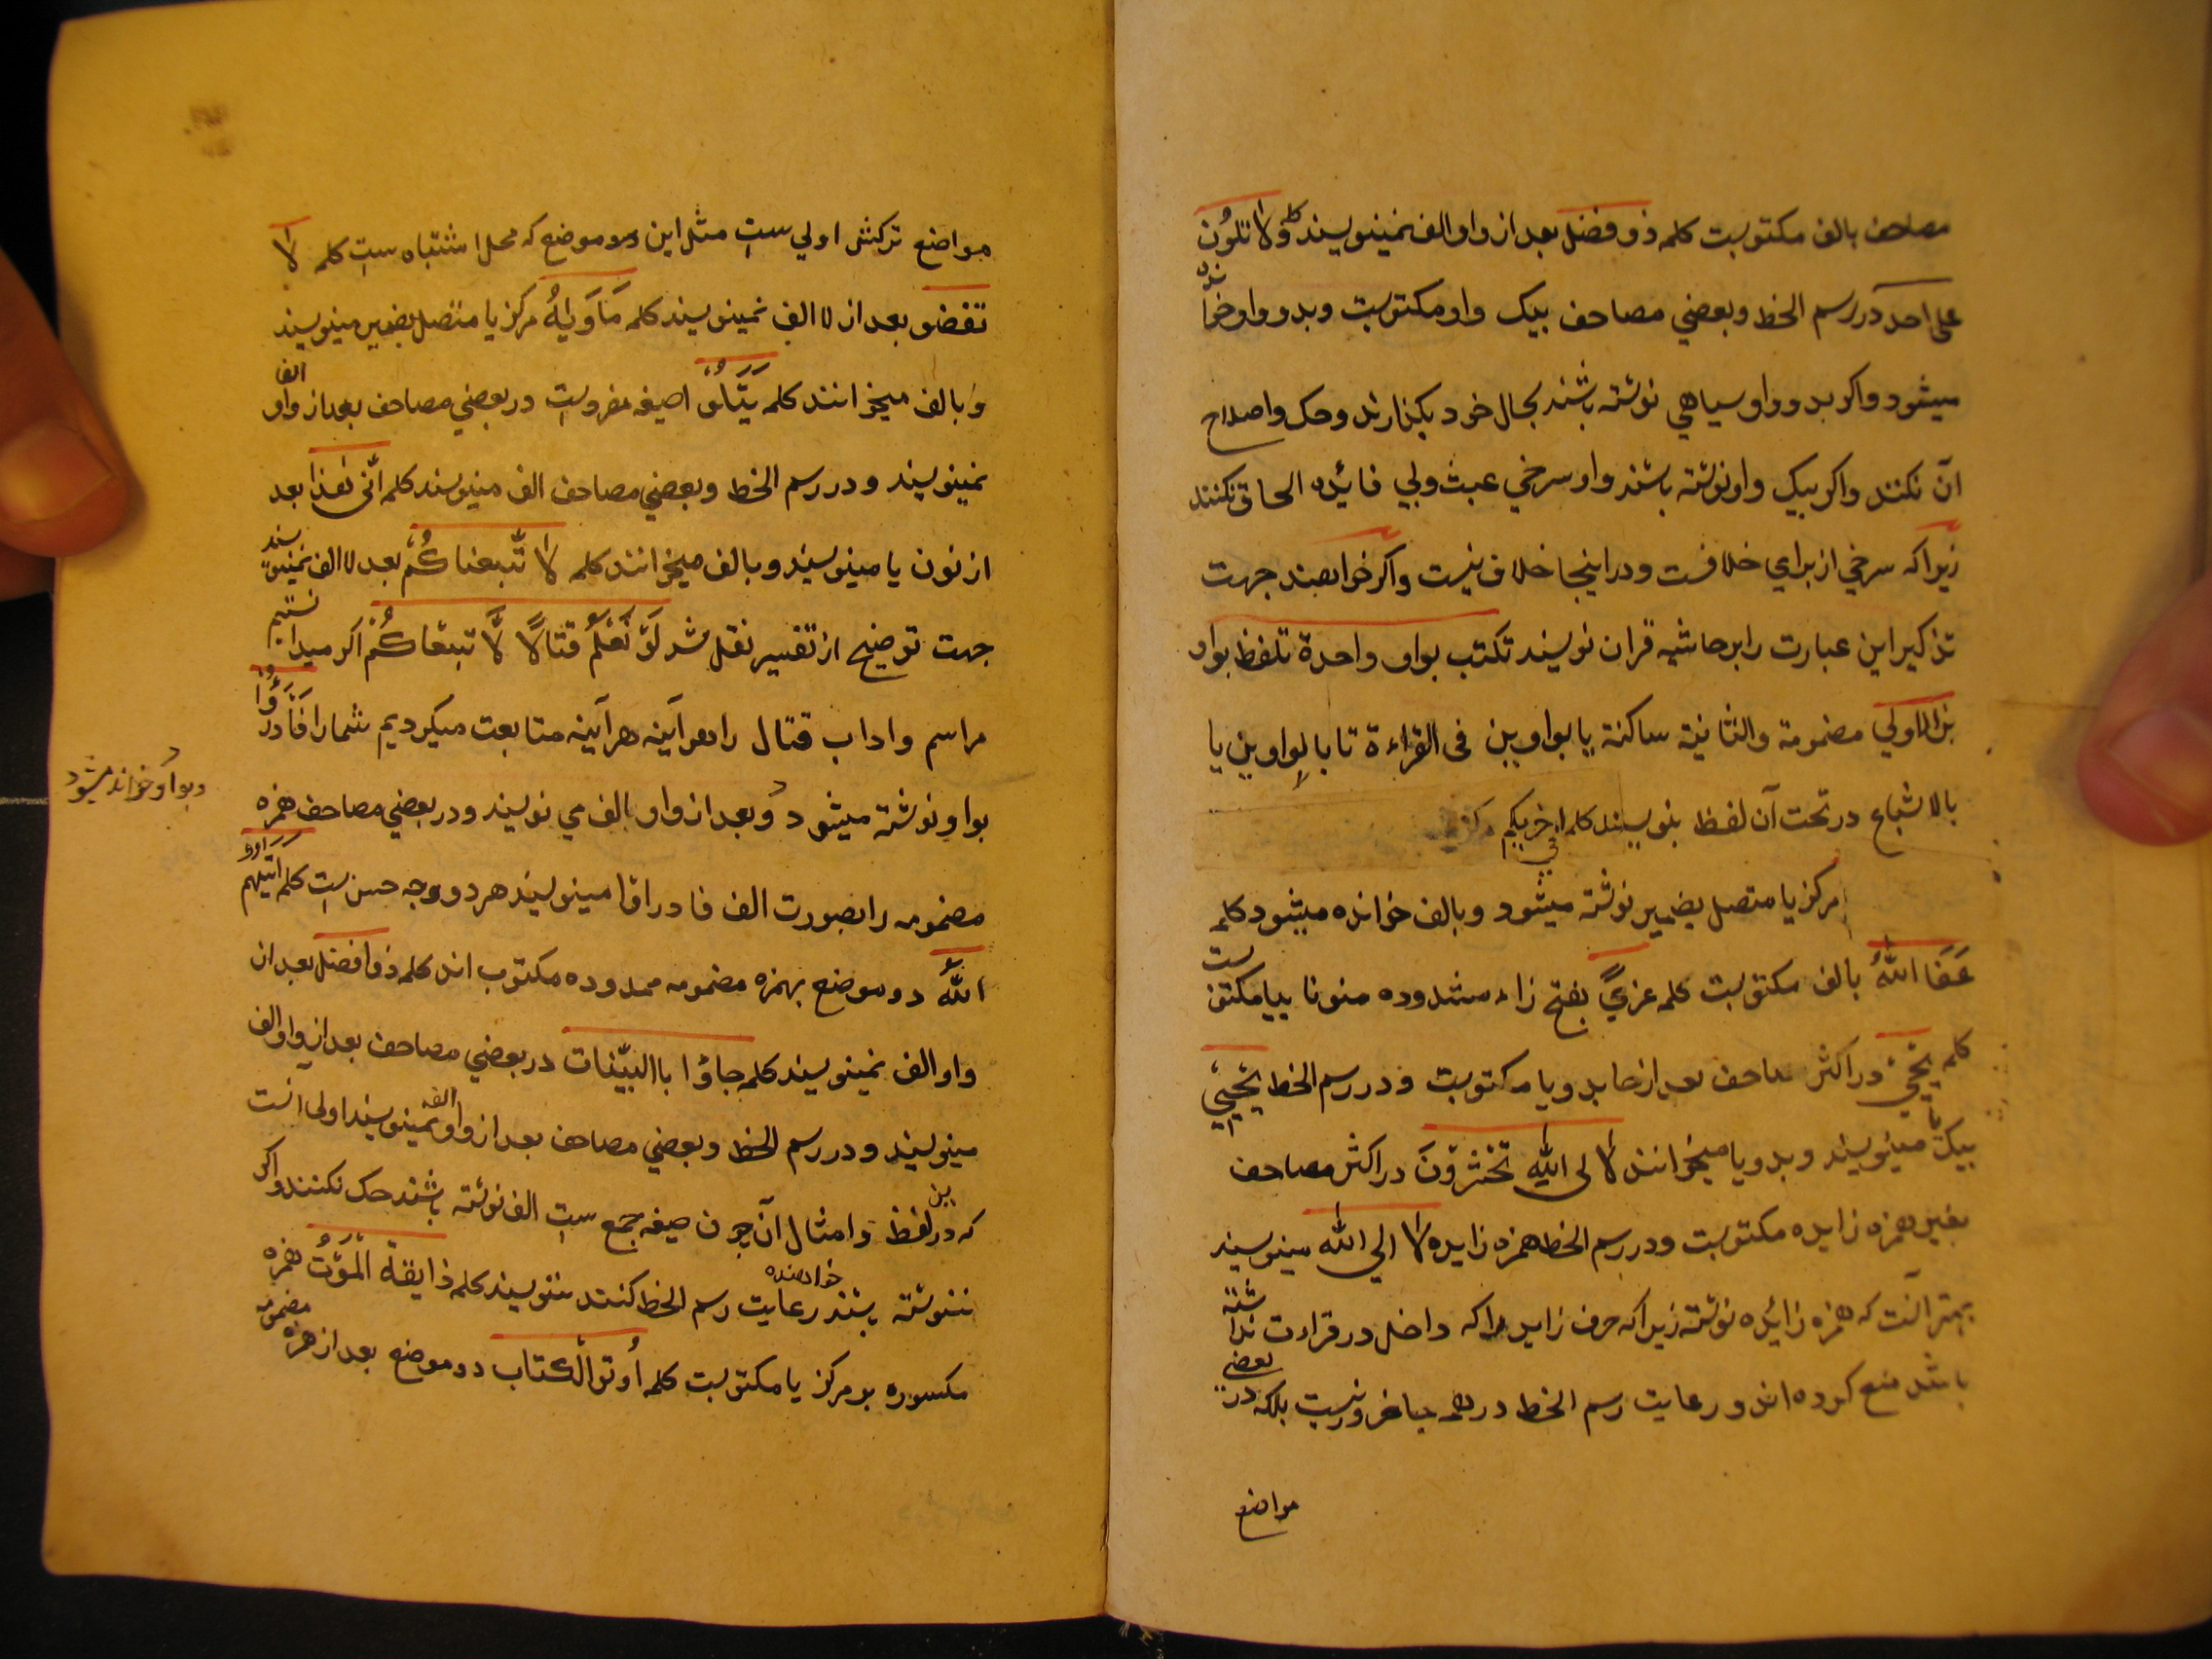 مصاحف بالف مکتوبست کلمه ذو فضل بعد از واو الف نمینویسند کلمه ولا تلون
علی احد در رسم الخط و بعضی مصاحف بیک واو مکتوبست و بدو واو خوانده
میشود و اکر بدو واو سیاهی نوشته باشند بحال خود بکذارند و حک و اصلاح
آن نکنند و اکر بیک واو نوشته باشند واو سرخی عبث و بی فائده الحاق نکنند
زیرا که سرخی از برای خلافست و در اینجا خلاف نیست و اکر خواهند جهت
تذکیر این عبارت را بر حاشیه قران نویسند تکتب بواو واحدة تلفظ بواو
ین الاولی مضمومة والثانیة ساکنة یا بواوین فی القراءة تا با بواوین یا
بالاشباع در تحت آن لفظ بنویسند کلمه اخریکم
مرکز یا متصل بضمیر نوشته میشود و بالف خوانده میشود کلمه
عَفَا اللهُ بالف مکتوبست کلمه غزیً بفتح زاء مشدوده منونا بیا مکتوبست
کلمه یحیی در اکثر مصاحف بعد از حا بدو یا مکتوبست و در رسم الخط یحیی
بیک یا مینویسند و بدو یا میخوانند لا لی الله تحشرونَ در اکثر مصاحف
بغیر همزه زایده مکتوبست و در رسم الخط همزه زایده لا الی الله مینویسند
بهتر آنست که همزه زائده نوشته نشود زیرا که حرف زاید را که داخل در قراءت
باشد منع کرده اند و رعایت رسم الخط در همه جا ضرور نیست بلکه در بعضی
مواضع
مواضع ترکش اولی ست مثل این دو موضع که محل اشتباه ست کلمه لا
تفضو بعد از لا الف نمینویسند کلمه مَاوَیٰهُ مرکز یا متصل بضمیر مینویسند
و بالف میخوانند کلمه یَتْلُو صیغه مفروست در بعضی مصاحف بعد از واو الف
نمینویسند و در رسم الخط و بعضی مصاحف الف مینویسند کلمه انّی هٰذا بعد
از نون یا مینویسند و بالف میخوانند کلمه لا تّبعناکُم بعد لا الف نمینویسند
جهت توضیح از تفسیر نقل شد لَوْ نَعْلَمُ قتالًا لَّا تبعناکُم اکر میدانستیم
مراسم و اداب قتال را هر آینه هر آینه متابعت میکردیم شما را فَادْرَؤُا
بواو نوشته میشود و بعد از واو بالف می نویسند و در بعضی مصاحف همزه
وبواو خوانده میشود
مضمومه را بصورت الف فادراوا مینویسند هر دو وجه حسن ست کلمه اتیٰهم
اللهُ دو موضع بهمزه مضمومه ممدوده مکتوب اند کلمه ذوا فضل بعد از
واو الف نمینویسند کلمه جاؤا باالبیّنات در بعضی مصاحف بعد از واو الف
مینویسند و در رسم الخط و بعضی مصاحف بعد از واو الف نمینویسند اولی انست
که درین لفظ و امثال آن چون صیغه جمع ست الف نوشته باشند حک نکنند و اکر
ننوشته باشند خواهنده رعایت رسم الخط کنند ننویسند کلمه ذایقة المَوْتُ همزه
مکسوره بر مرکز یا مکتوبست کلمه اُوتو الْکتاب دو موضع بعد از همزه مضمومه